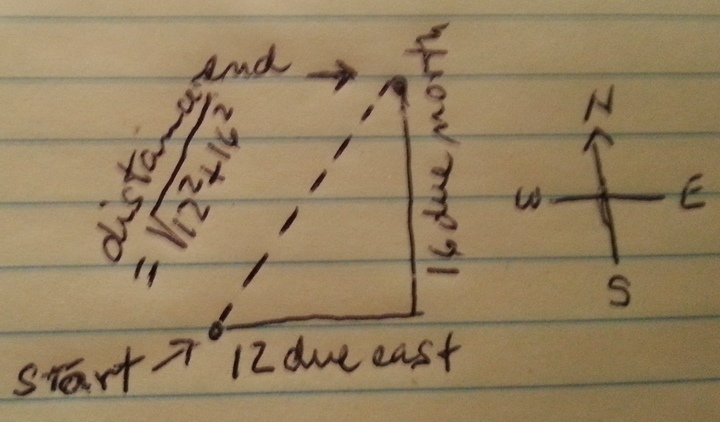 end →
distance
= √12²+16²
16 due north
start →
12 due east
N
W E
S